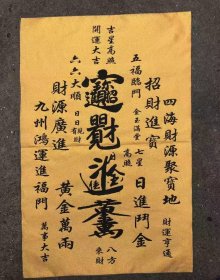 四海財源聚寶地
財運亨通
招財進寶
日進鬥金
五福臨門
金玉滿堂
七星
高照
吉星高照
開運大吉
八方
來財
六六大順
財源廣進
黃金萬兩
九州鴻運進福門
萬事大吉